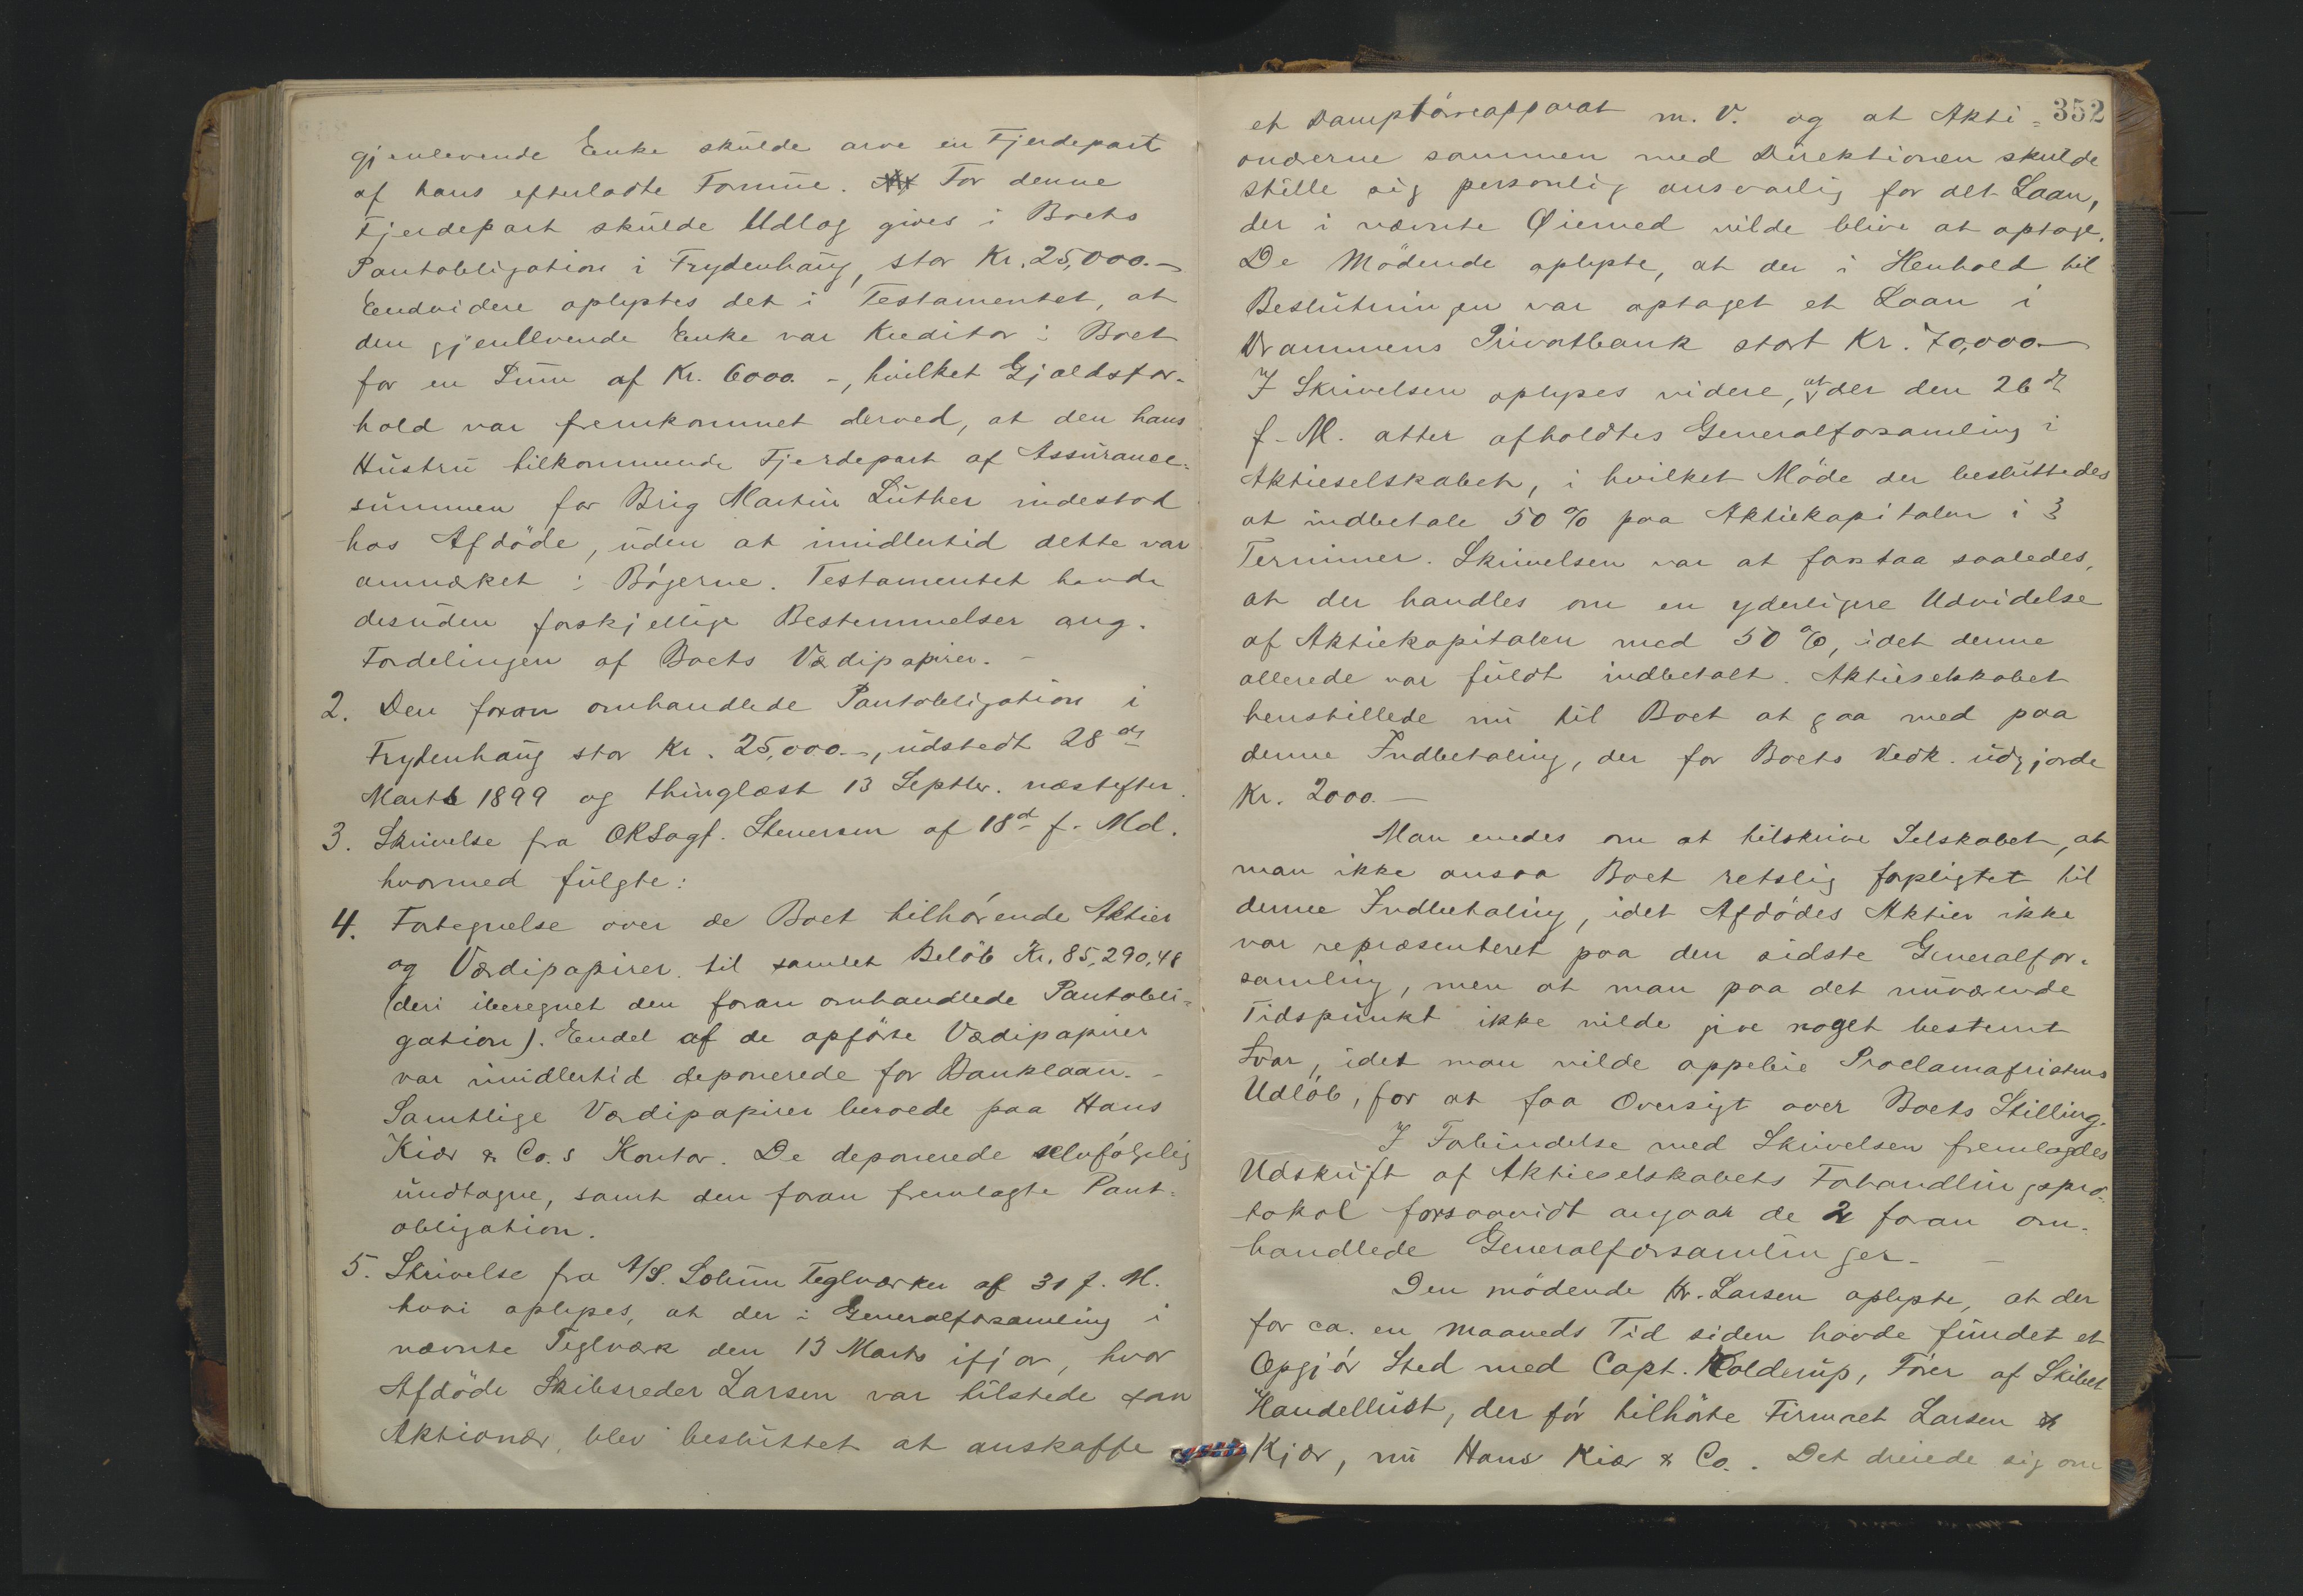 gjenlevende Enke skulde arve en Fjerdepart
af hans efterladte Formue. For denne
Fjerdepart skulde Udlog gives i Boets
Pantobligation i Frydenhaug, stor Kr. 25,000.–
Endvidere oplystes det i Testamentet, at
den gjenlevende Enke var Kreditor i Boet
for en Sum af Kr. 6000.–, hvilket Gjældsfor-
hold var fremkommet derved, at den hans
Hustru tilkommende Fjerdepart af Assurance-
summen for Brig Martin Luther indestod
hos Afdöde, uden at imidlertid dette var
anmærket i Bögerne. Testamentet havde
desuden forskjellige Bestemmelser ang.
Fordelingen af Boets Værdipapirer. –
2. Den foran omhandlede Pantobligation i
Frydenhaug stor Kr. 25,000.–, udstedt 28de
Marts 1899 og thinglæst 13 Septbr. næstefter.
3. Skrivelse fra ORSagf. Stenersen af 18de f. Md.
hvormed fulgte:
4. Fortegnelse over de Boet tilhörende Aktier
og Værdipapirer til samlet Belöb Kr. 85,290,48
(deri iberegnet den foran omhandlede Pantobli-
gation). Endel af de opförte Værdipapirer
var imidlertid deponerede for Banklaan. –
Samtlige Værdipapirer beroede paa Hans
Kiær & Co.s Kontor. De deponerede selvfölgelig
undtagne, samt den foran fremlagte Pant-
obligation.
5. Skrivelse fra A/S. Solum Teglværker af 31 f. M.
hvori oplyses, at der i Generalforsamling i
nævnte Teglværk den 13 Marts ifjor, hvor
Afdöde Skibsreder Larsen var tilstede som
Aktionær, blev besluttet at anskaffe
352
et Damptörreapparat m. V. og at Akti-
onærerne sammen med Direktionen skulde
stille sig personlig ansvarlig for det Laan,
der i nævnte Øiemed vilde blive at optage.
De Mödende oplyste, at der i Henhold til
Beslutningen var optaget et Laan i
Drammens Privatbank stort Kr. 70,000.–
I Skrivelsen oplyses videre, at der den 26de
f. M. atter afholdtes Generalforsamling i
Aktieselskabet, i hvilket Möde der besluttedes
at indbetale 50 % paa Aktiekapitalen i 3
Terminer. Skrivelsen var at forstaa saaledes,
at der handles om en yderligere Udvidelse
af Aktiekapitalen med 50 %, idet denne
allerede var fuldt indbetalt. Aktieselskabet
henstillede nu til Boet at gaa med paa
denne Indbetaling, der for Boets Vedk. udgjorde
Kr. 2000.–
Man enedes om at tilskrive Selskabet, at
man ikke ansaa Boet retslig forpligtet til
denne Indbetaling, idet Afdödes Aktier ikke
var repræsenteret paa den sidste Generalfor-
samling, men at man paa det nuværende
Tidspunkt ikke vilde give noget bestemt
Svar, idet man vilde oppebie Proclamafristens
Udlöb, for at faa Oversigt over Boets Stilling.
I Forbindelse med Skrivelsen fremlagdes
Udskrift af Aktieselskabets Forhandlingspro-
tokol forsaavidt angaar de 2 foran om-
handlede Generalforsamlinger. –
Den mödende Hr. Larsen oplyste, at der
for ca. en Maaneds Tid siden havde fundet et
Opgjör Sted med Capt. Kolderup, Förer af Skibet
Handellust, der för tilhörte Firmaet Larsen &
Kjær, nu Hans Kiær & Co. Det dreiede sig om